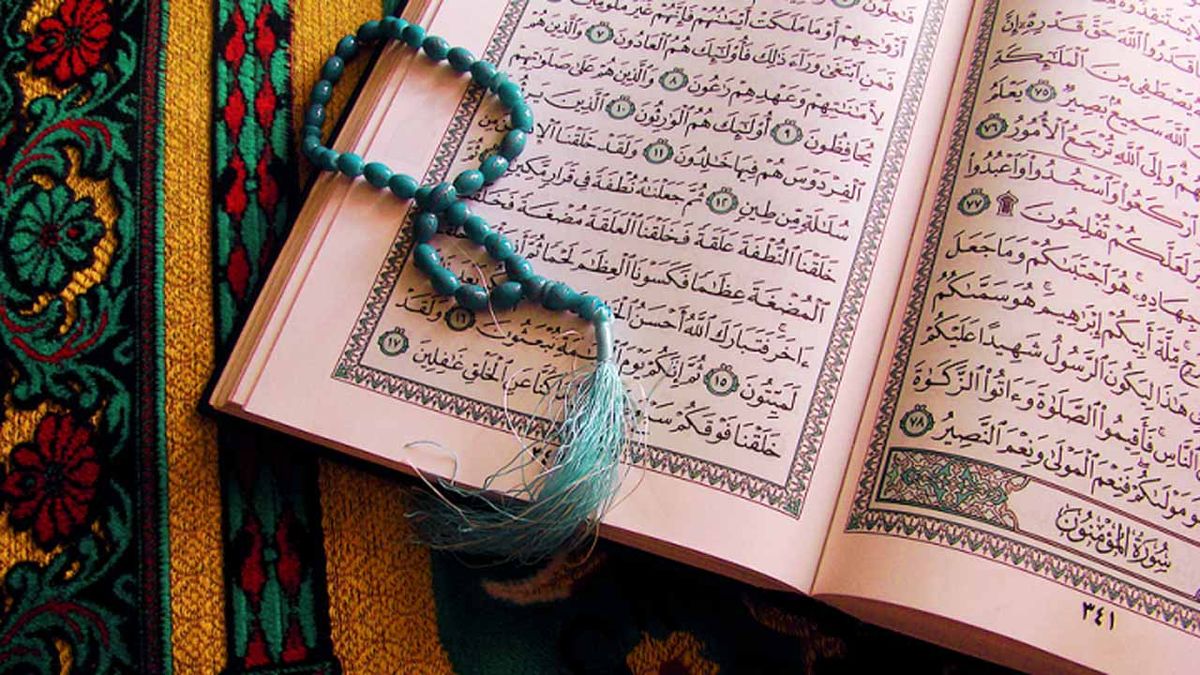 قَدَرُوا۟ ٱللَّهَ حَقَّ قَدْرِهِۦٓ إِنَّ
يَصْطَفِى مِنَ ٱلْمَلَٰٓئِكَةِ
ٱللَّهَ سَمِيعٌۢ بَصِيرٌ ٧٥ يَعْلَمُ
وَإِلَى ٱللَّهِ تُرْجَعُ ٱلْأُمُورُ ٧٦
ٱرْكَعُوا۟ وَٱسْجُدُوا۟ وَٱعْبُدُوا۟
لَعَلَّكُمْ تُفْلِحُونَ ۩ ٧٧
جِهَادِهِۦ هُوَ ٱجْتَبَىٰكُمْ وَمَا جَعَلَ
مِّلَّةَ أَبِيكُمْ إِبْرَٰهِيمَ هُوَ سَمَّىٰكُمُ
هَٰذَا لِيَكُونَ ٱلرَّسُولُ شَهِيدًا عَلَيْكُمْ
ٱلنَّاسِ فَأَقِيمُوا۟ ٱلصَّلَوٰةَ وَءَاتُوا۟ ٱلزَّكَوٰةَ
مَوْلَىٰكُمْ فَنِعْمَ ٱلْمَوْلَىٰ وَنِعْمَ ٱلنَّصِيرُ ٧٨
سُورَةُ المُؤْمِنُونَ
٣٤١
فَٰعِلُونَ
أَزْوَٰجِهِمْ أَوْ مَا مَلَكَتْ أَيْمَٰنُهُمْ فَإِنَّهُمْ غَيْرُ مَلُومِينَ
فَمَنِ ٱبْتَغَىٰ وَرَآءَ ذَٰلِكَ فَأُو۟لَٰٓئِكَ هُمُ ٱلْعَادُونَ ٧ وَٱلَّذِينَ هُمْ
لِأَمَٰنَٰتِهِمْ وَعَهْدِهِمْ رَٰعُونَ ٨ وَٱلَّذِينَ هُمْ عَلَىٰ صَلَوَٰتِهِمْ
يُحَافِظُونَ ٩ أُو۟لَٰٓئِكَ هُمُ ٱلْوَٰرِثُونَ ١٠ ٱلَّذِينَ
ٱلْفِرْدَوْسَ هُمْ فِيهَا خَٰلِدُونَ ١١ وَلَقَدْ خَلَقْنَا
سُلَٰلَةٍ مِّن طِينٍ ١٢ ثُمَّ جَعَلْنَٰهُ نُطْفَةً فِى قَرَارٍ مَّكِينٍ
خَلَقْنَا ٱلنُّطْفَةَ عَلَقَةً فَخَلَقْنَا ٱلْعَلَقَةَ مُضْغَةً فَخَلَقْنَا
ٱلْمُضْغَةَ عِظَٰمًا فَكَسَوْنَا ٱلْعِظَٰمَ لَحْمًا ثُمَّ
ءَاخَرَ فَتَبَارَكَ ٱللَّهُ أَحْسَنُ
لَمَيِّتُونَ ١٥ ثُمَّ إِنَّكُمْ يَوْمَ تُبْعَثُونَ ١٦ وَلَقَدْ
خَلَقْنَا فَوْقَكُمْ كُنَّا عَنِ ٱلْخَلْقِ غَٰفِلِينَ ١٧